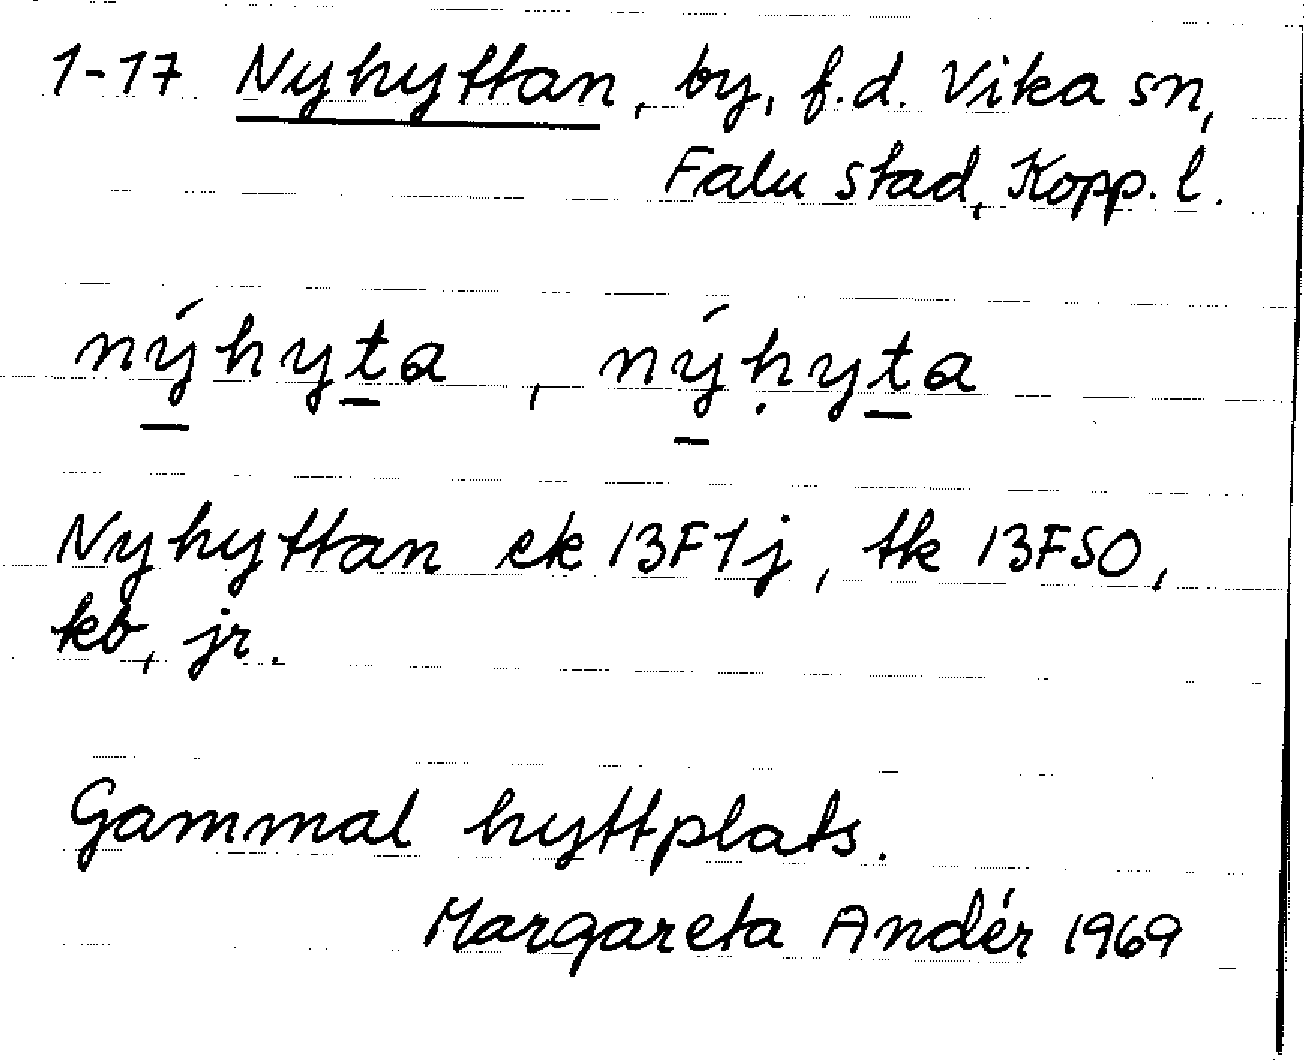 1-17 Nyhyttan, by, f.d. Vika sn,
Falu stad, Kopp. l.
nýhyta, nýḥyta
Nyhyttan ek 13F1j, tk 13FSO,
kb, jr.
Gammal hyttplats.
Margareta Andér 1969